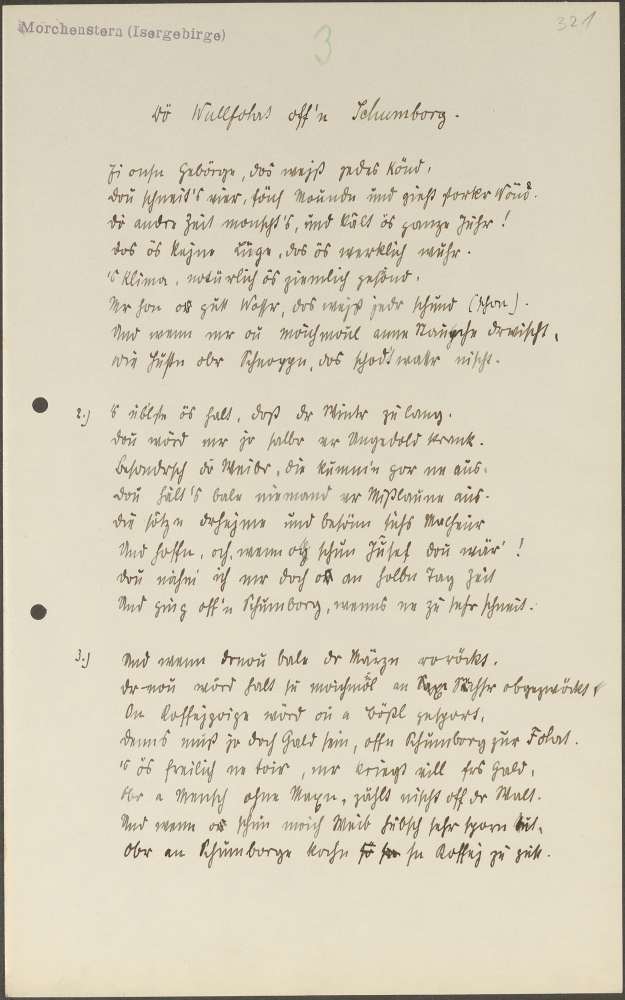 Morchenstern (Isergebirge)
3
321
Dö Wallfohrt off'n Schumborg.
Ei onsn Gebörge, dos wejß jedes Könd,
Dou schneit's vier, fönf Mounde und gieht storkr Wönd.
Di andre Zeit monscht's, und kält ös ganze Juhr!
Dos ös kejne Lüge, dos ös werklich wuhr.
's Klima, notürlich ös ziemlich gesönd.
Mr hon og gutt Wossr, dos wejß jedr schund (schon).
Und wenn mr ou moichmoul anne drwischt,
wie Husten obr Schnoppn, dos schodt waitr nischt.
2.) 's üblste ös halt, doß dr Wintr zu lang.
Dou wörd mr jo salbr vr Ungedold krank.
Besondrsch di Weibr, die kumm'n gor ne aus.
Dou hält's bale niemand vr Mißlaune aus.
Die sötzn drhejme und besönn sichs Malheur
Und hoffn, och, wenn og schun Jusef dou wär'!
Dou nähm ich mr doch og an holbn Tag Zeit
Und ging off'n Schumborg, wenns ne zu sehr schneit.
3.) Und wenn drnou bale dr Märzn roröckt,
Dr-nou wörd halt su moichmöl an Sächsr obgezwöckt,
On Koffej wörd ou a bößl gesport,
Denns muß jo doch Gald sein, offn Schumborg zur Fohrt.
's ös freilich ne toir, mr kriegt vill frs Gald,
Obr a Mensch ohne Maxn, zählt nischt off dr Walt.
Und wenn og schun moich Weib hübsch sehr sporn tut,
Obr an Schumborge kochn se Koffej zu gutt.